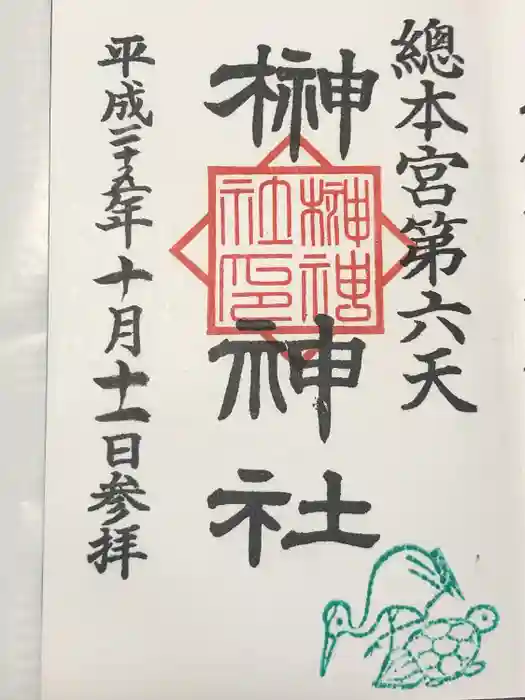 總本宮第六天
榊神社
榊神社印
平成二十五年十月十一日参拝